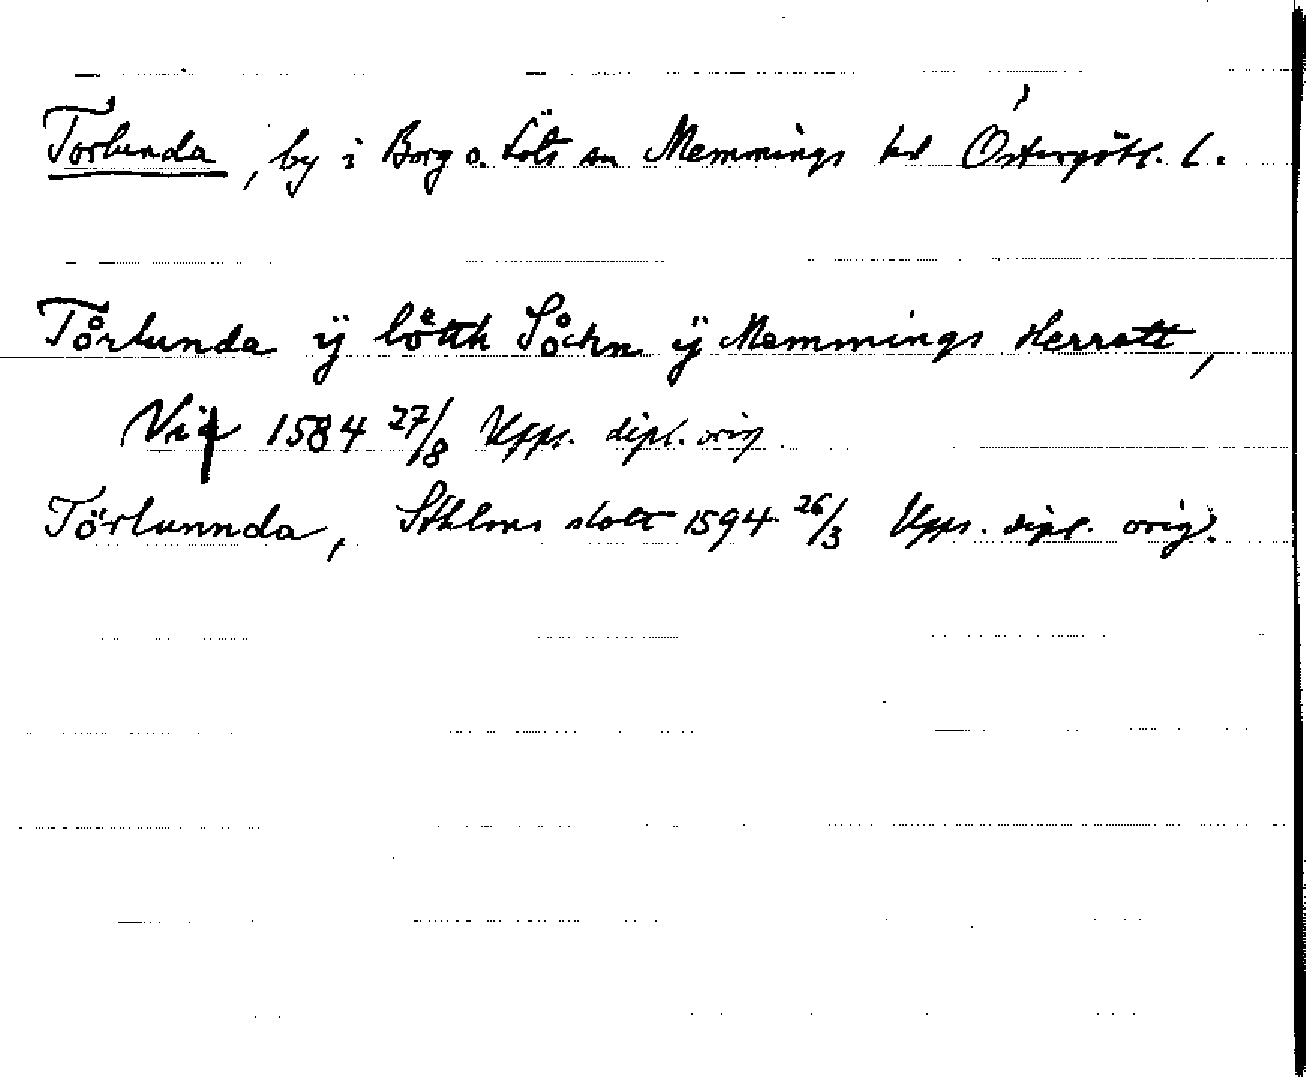 Torlunda, by i Borg o. Löts sn Memmings hd Östergötl. l.
To&#778;rlunda ÿ lo&#778;tth So&#778;ckn ÿ Memmings Herratt,
1584 27/8 Upps. dipl. orig
Törlunnda, Sthlms slott 1594 26/3 Upps. dipl. orig.